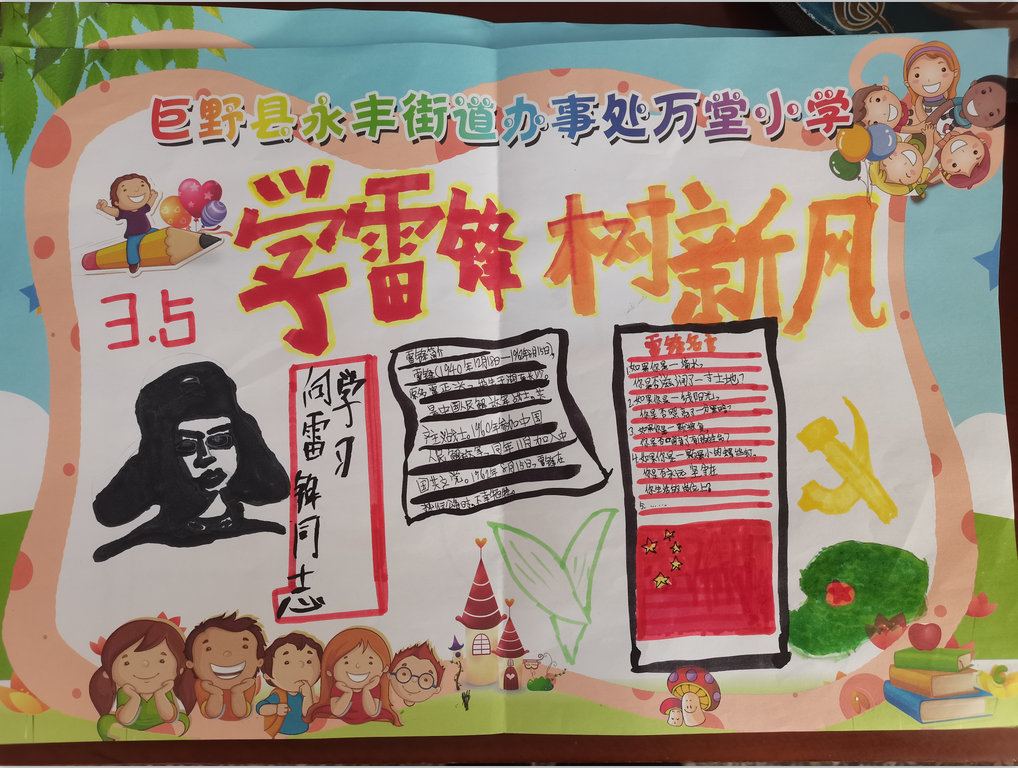 巨野县永丰街道办事处万堂小学
学雷锋 树新风
3.5
学习
向雷锋同志
雷锋简介
雷锋(1940年12月18日—1962年8月15日),
是中国人民解放军战士、共
产主义战士。1960年参加中国
人民解放军、同年11月加入中
国共产党。1962年8月15日,雷锋在
雷锋名言
1.如果你是一滴水,
你是否滋润了一寸土地?
2.如果你是一线阳光,
你是否照亮了一分黑暗?
3.如果你是一颗粮食,
4.如果你是一颗最小的螺丝钉.
你是否永远坚守在
你生活的岗位上?
5.……